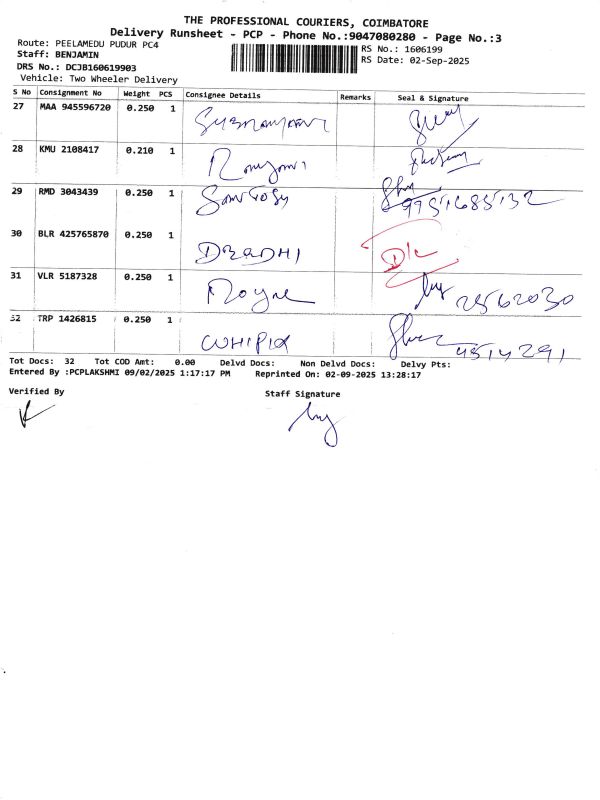 THE PROFESSIONAL COURIERS, COIMBATORE
Delivery Runsheet - PCP - Phone No.:9047080280 - Page No.:3
Route: PEELAMEDU PUDUR PC4
RS No.: 1606199
Staff: BENJAMIN
RS Date: 02-Sep-2025
DRS No.: DCJB160619903
Vehicle: Two Wheeler Delivery
S No Consignment No Weight PCS Consignee Details Remarks Seal & Signature
27 MAA 945596720 0.250 1
28 KMU 2108417 0.210 1
29 RMD 3043439 0.250 1 9751685132
30 BLR 425765870 0.250 1 D/c
31 VLR 5187328 0.250 1 2562030
32 TRP 1426815 0.250 1 4514291
Tot Docs: 32 Tot COD Amt: 0.00 Delvd Docs: Non Delvd Docs: Delvy Pts:
Entered By :PCPLAKSHMI 09/02/2025 1:17:17 PM Reprinted On: 02-09-2025 13:28:17
Verified By
Staff Signature